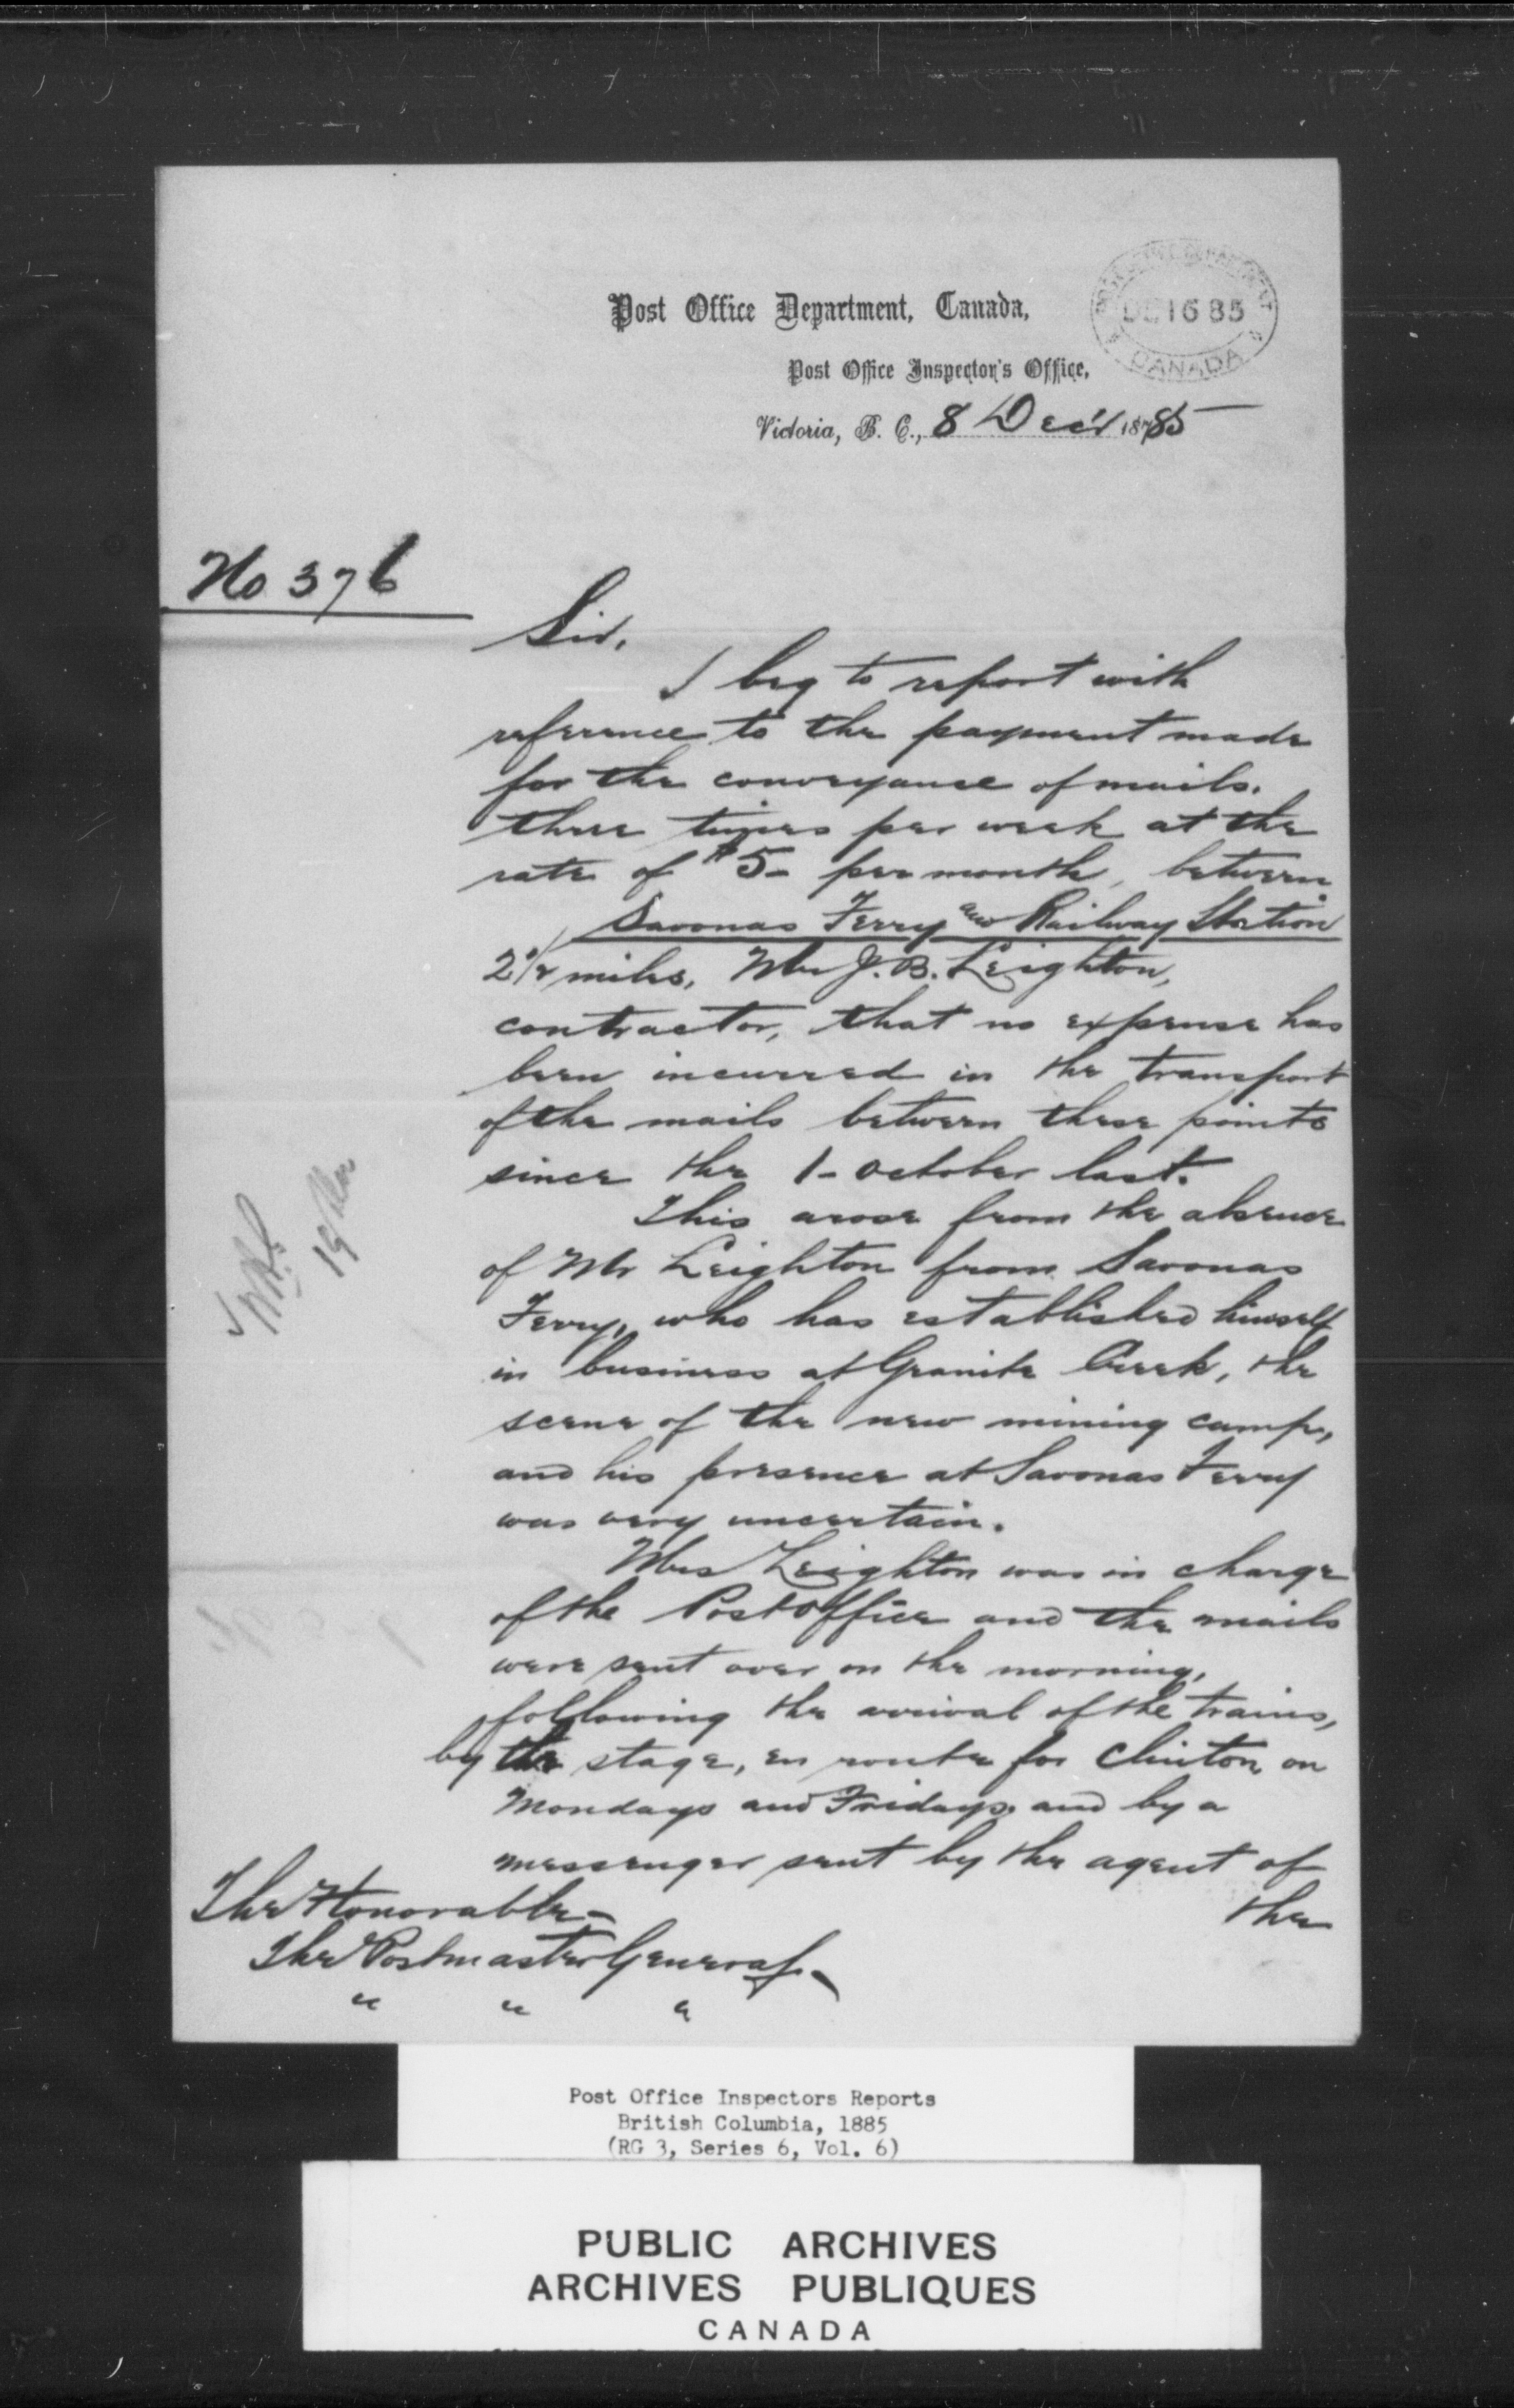 Post Office Department, Canada,
DE 16 85
CANADA
Post Office Inspector's Office,
Victoria, B. C., 8 Dec'r 18785
No 376
Sir,
I beg to report with
reference to the payment made
for the conveyance of mails.
three times per week at the
rate of $5- per month, between
Savonas Ferry and Railway Station
2 1/2 miles, Mr J. B. Leighton,
contractor, that no expense has
been incurred in the transport
of the mails between these points
since the 1- October last.
This arose from the absence
of Mr Leighton from Savonas
Ferry, who has established himself
in business at Granite Creek, the
scene of the new mining camp,
and his presence at Savonas Ferry
was very uncertain.
Mrs Leighton was in charge
of the Post Office and the mails
were sent over on the morning,
following the arrival of the trains,
by the stage, en route for Clinton on
Mondays and Fridays and by a
messenger sent by the agent of
the
The Honorable-
The Postmaster General-
" " "
Post Office Inspectors Reports
British Columbia, 1885
(RG 3, Series 6, Vol. 6)
PUBLIC ARCHIVES
ARCHIVES PUBLIQUES
CANADA